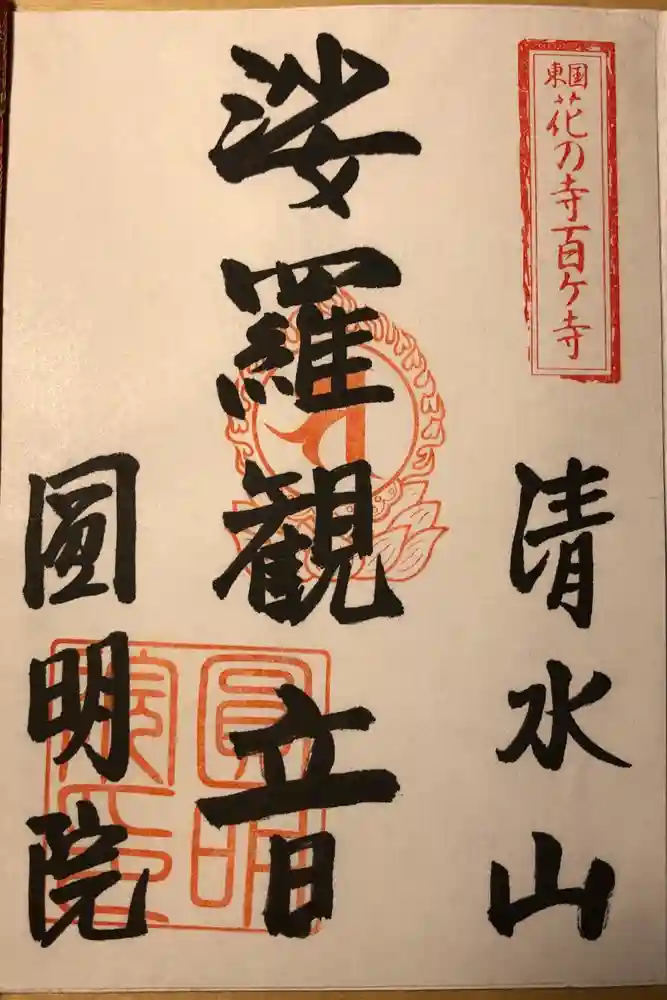 東国
花乃寺百ケ寺
清水山
娑羅観音
圓明院
圓明
院印